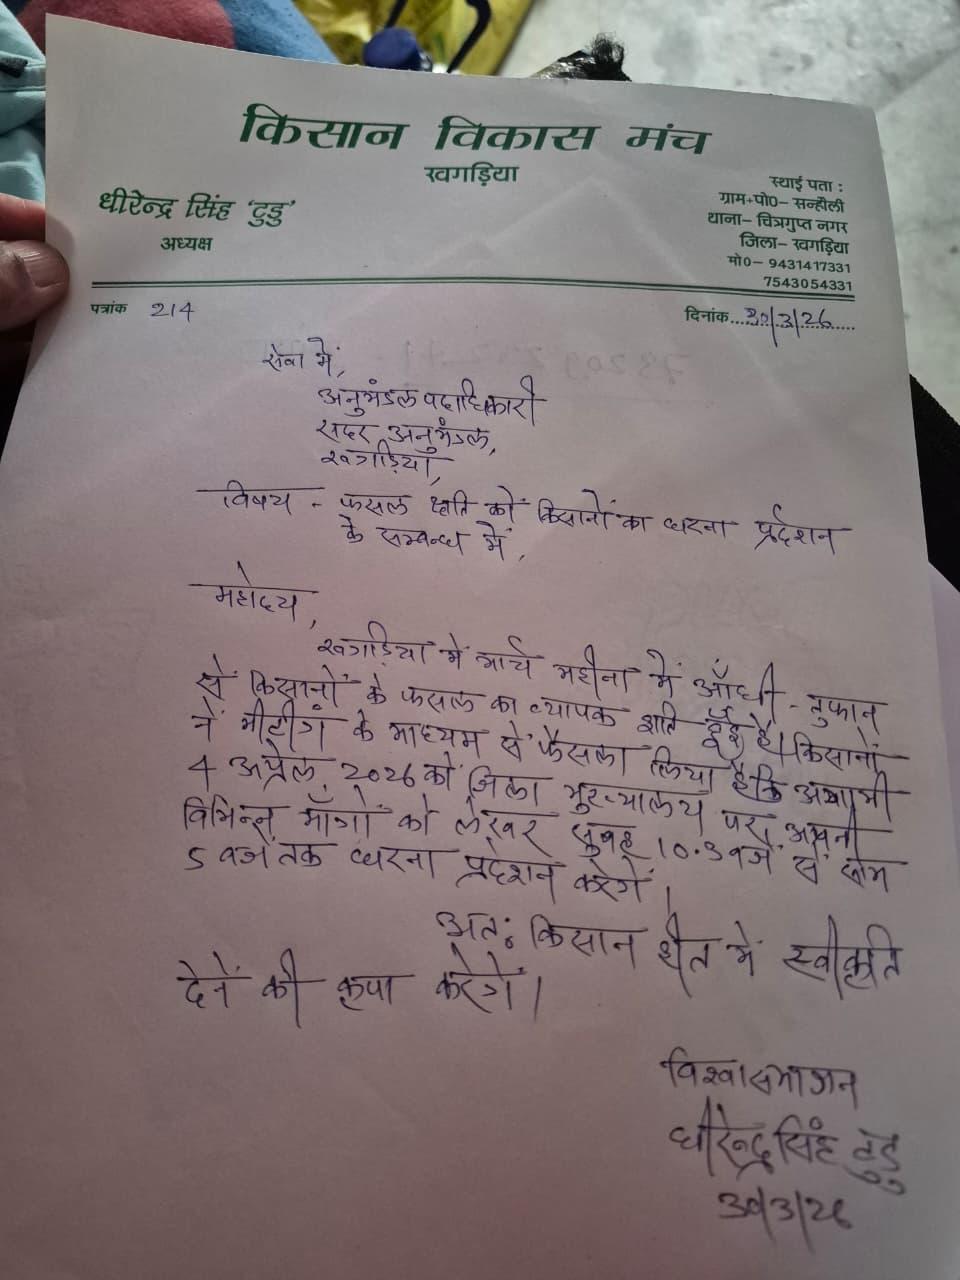 किसान विकास मंच
खगड़िया
धीरेन्द्र सिंह 'टुडु'
अध्यक्ष
स्थाई पता :
ग्राम+पो0- सन्हौली
थाना- चित्रगुप्त नगर
जिला- खगड़िया
मो0- 9431417331
7543054331
पत्रांक 214
दिनांक 30/3/26
सेवा में,
अनुमंडल पदाधिकारी
सदर अनुमंडल,
खगड़िया,
विषय - फसल क्षति को किसानों का धरना प्रदेशन
के सम्बन्ध में,
महोदय,
खगड़िया में मार्च महीना में आँधी - तुफान
से किसानों के फसल का व्यापक क्षति हुई है। किसानों
ने मीटींग के माध्यम से फैसला लिया है कि अगामी
4 अप्रेल, 2026 को जिला मुख्यालय पर अपनी
विभिन्न माँगों को लेकर सुबह 10.30 बजे से शाम
5 बजे तक धरना प्रदेशन करेगें।
अत: किसान हीत में स्वीकृति
देनें की कृपा करेगें।
विश्वासभाजन
धीरेन्द्र सिंह टुडु
30/3/26